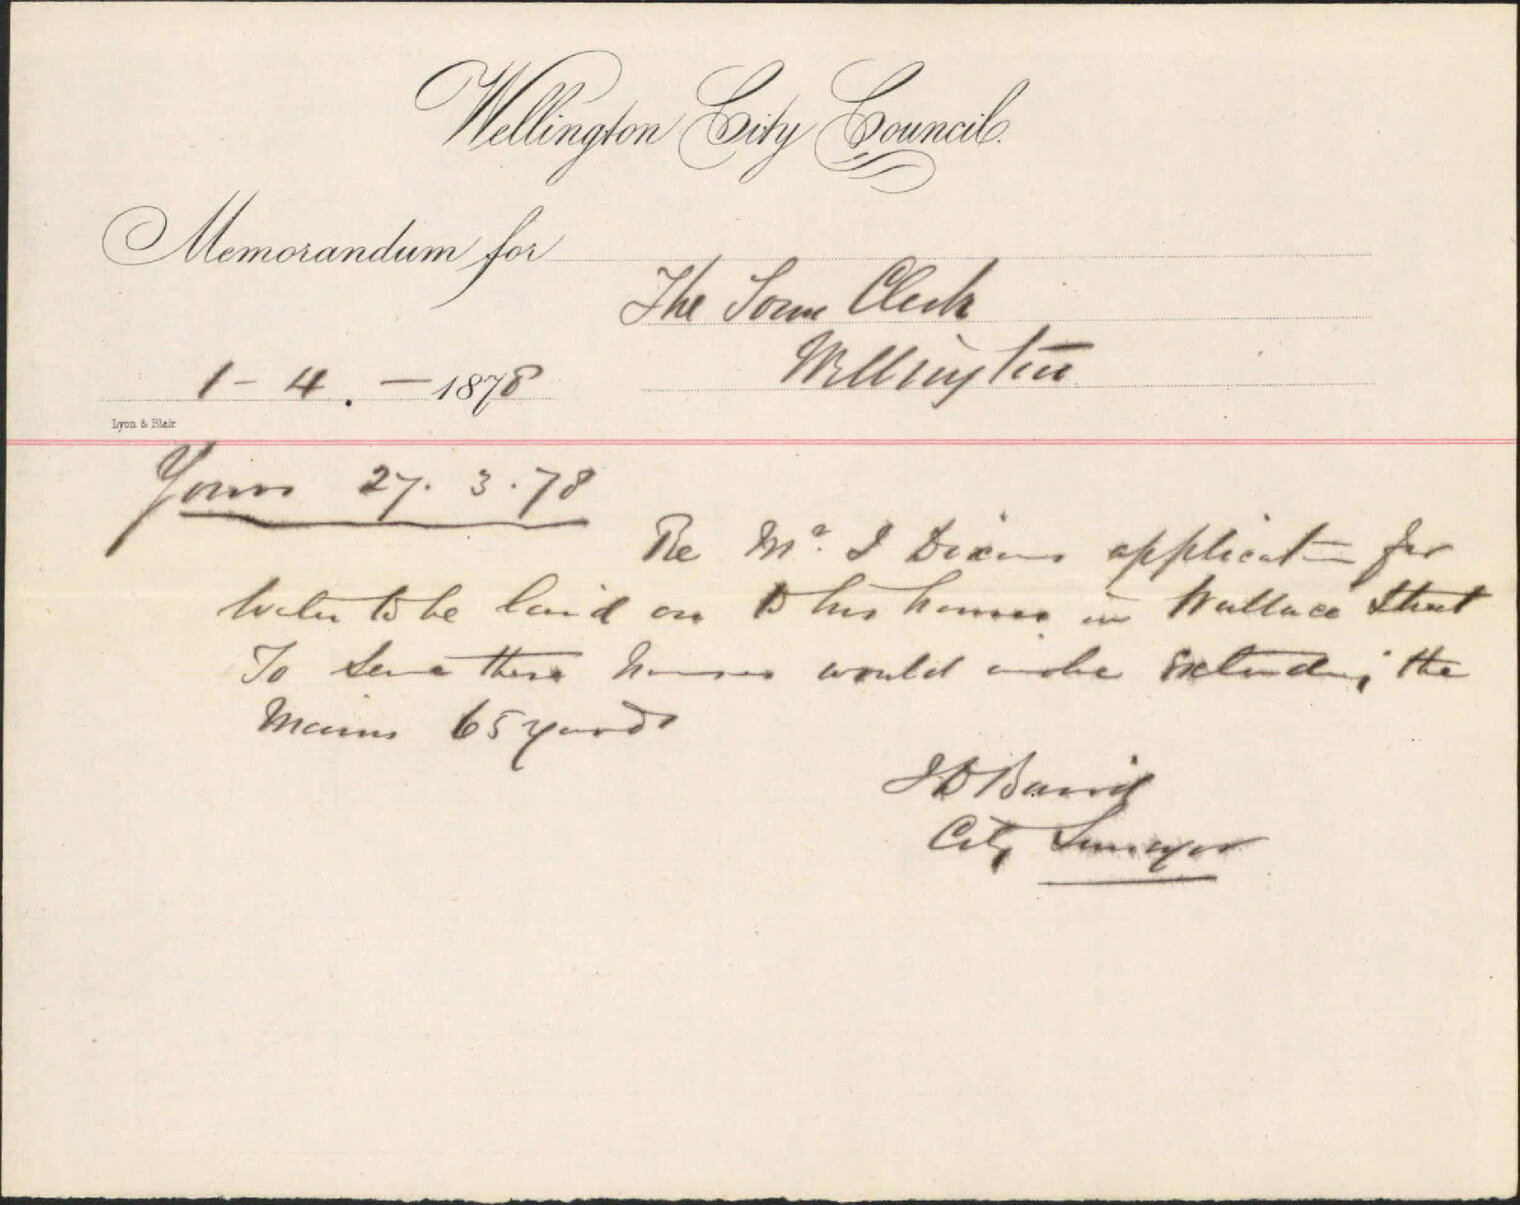 Wellington City Council.
Memorandum for
The Town Clerk
Wellington
1 - 4. - 1878
Lyon & Blair
Yours 27. 3. 78
Re Mr. J Dixons application for
water to be laid on to his houses in Wallace Street
To serve these houses would involve extending the
Mains 65 yards
J D Baird
City Surveyor